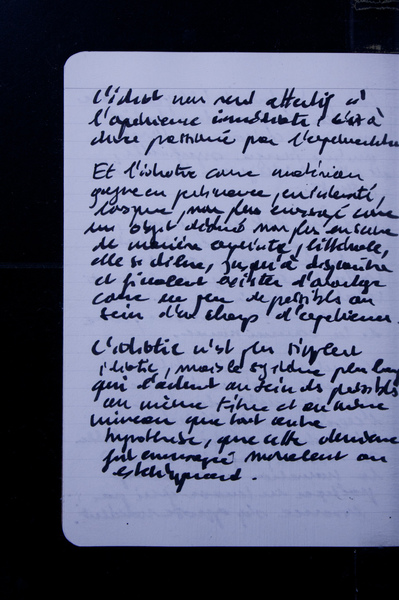 L'idiot nous rend attentif à
l'expérience immédiate, c'est à
dire passionné par l'expérimentation
Et l'idiotie comme matériau
gagne en pertinence, en intensité,
lorsque, non plus envisagé comme
un objet désiré non plus en scène
de manière, littérale,
elle se dilue, jusqu'à disparaître
et finalement exister d'avantage
comme un jeu de possibles au
sein d'un champ d'expériences.
L'idiotie n'est plus simplement
idiotie, mais le système plus large
qui l'admet au sein des possibles
au même titre et au même
niveau que tout autre
hypothèse, que cette dernière
soit envisagé moralement ou
esthétiquement.